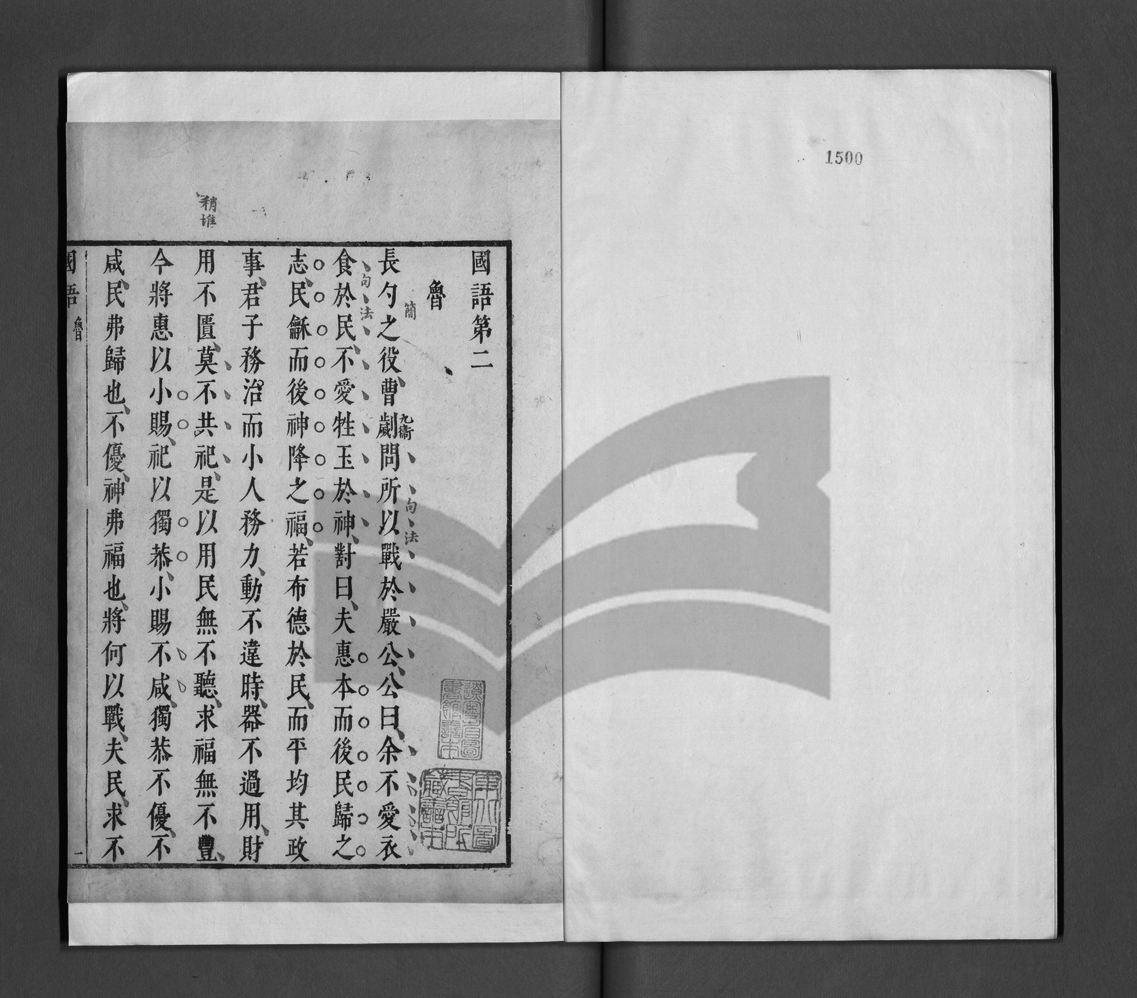 1500
國語第二
魯
長勺之役曹劌問所以戰於嚴公公曰余不愛衣
食於民不愛牲玉於神對曰夫惠本而後民歸之
志民龢而後神降之福若布德於民而平均其政
事君子務治而小人務力動不違時器不過用財
用不匱莫不共祀是以用民無不聽求福無不豐
今將惠以小賜祀以獨恭小賜不咸獨恭不優不
咸民弗歸也不優神弗福也將何以戰夫民求不
國語
魯
一
簡
九衞
句法
句法
稍